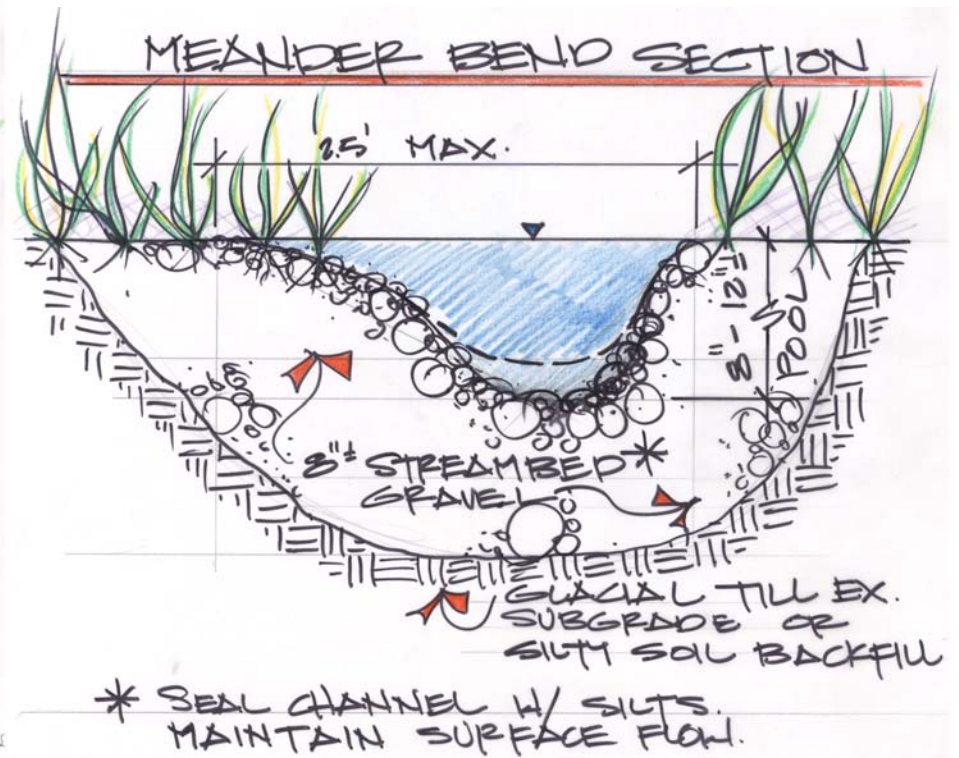 MEANDER BEND SECTION
2.5' MAX.
8" - 12"±
POOL
8"± STREAMBED *
GRAVEL
GLACIAL TILL EX.
SUBGRADE OR
SILTY SOIL BACKFILL
* SEAL CHANNEL W/ SILTS.
MAINTAIN SURFACE FLOW.